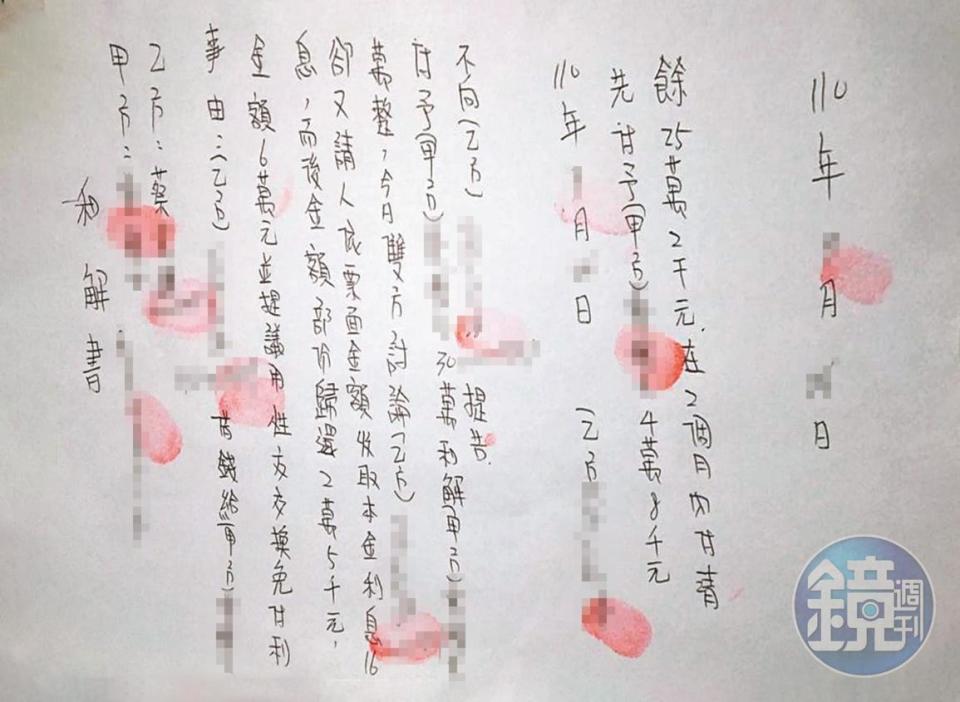 和解書
甲方：
乙方：蔡
事由：(乙方) 借錢給甲方)
金額6萬元並提議用性交交換免付利
息，而後金額部份歸還2萬5千元，
卻又請人依票面金額收取本金利息16
萬整，今日雙方討論(乙方)
付予甲方) 30萬和解甲方)
不向(乙方) 提告.
110年 月 日 乙方
先付予甲方) 4萬8千元
餘25萬2千元.在2個月內付清
110年 月 日
鏡週刊